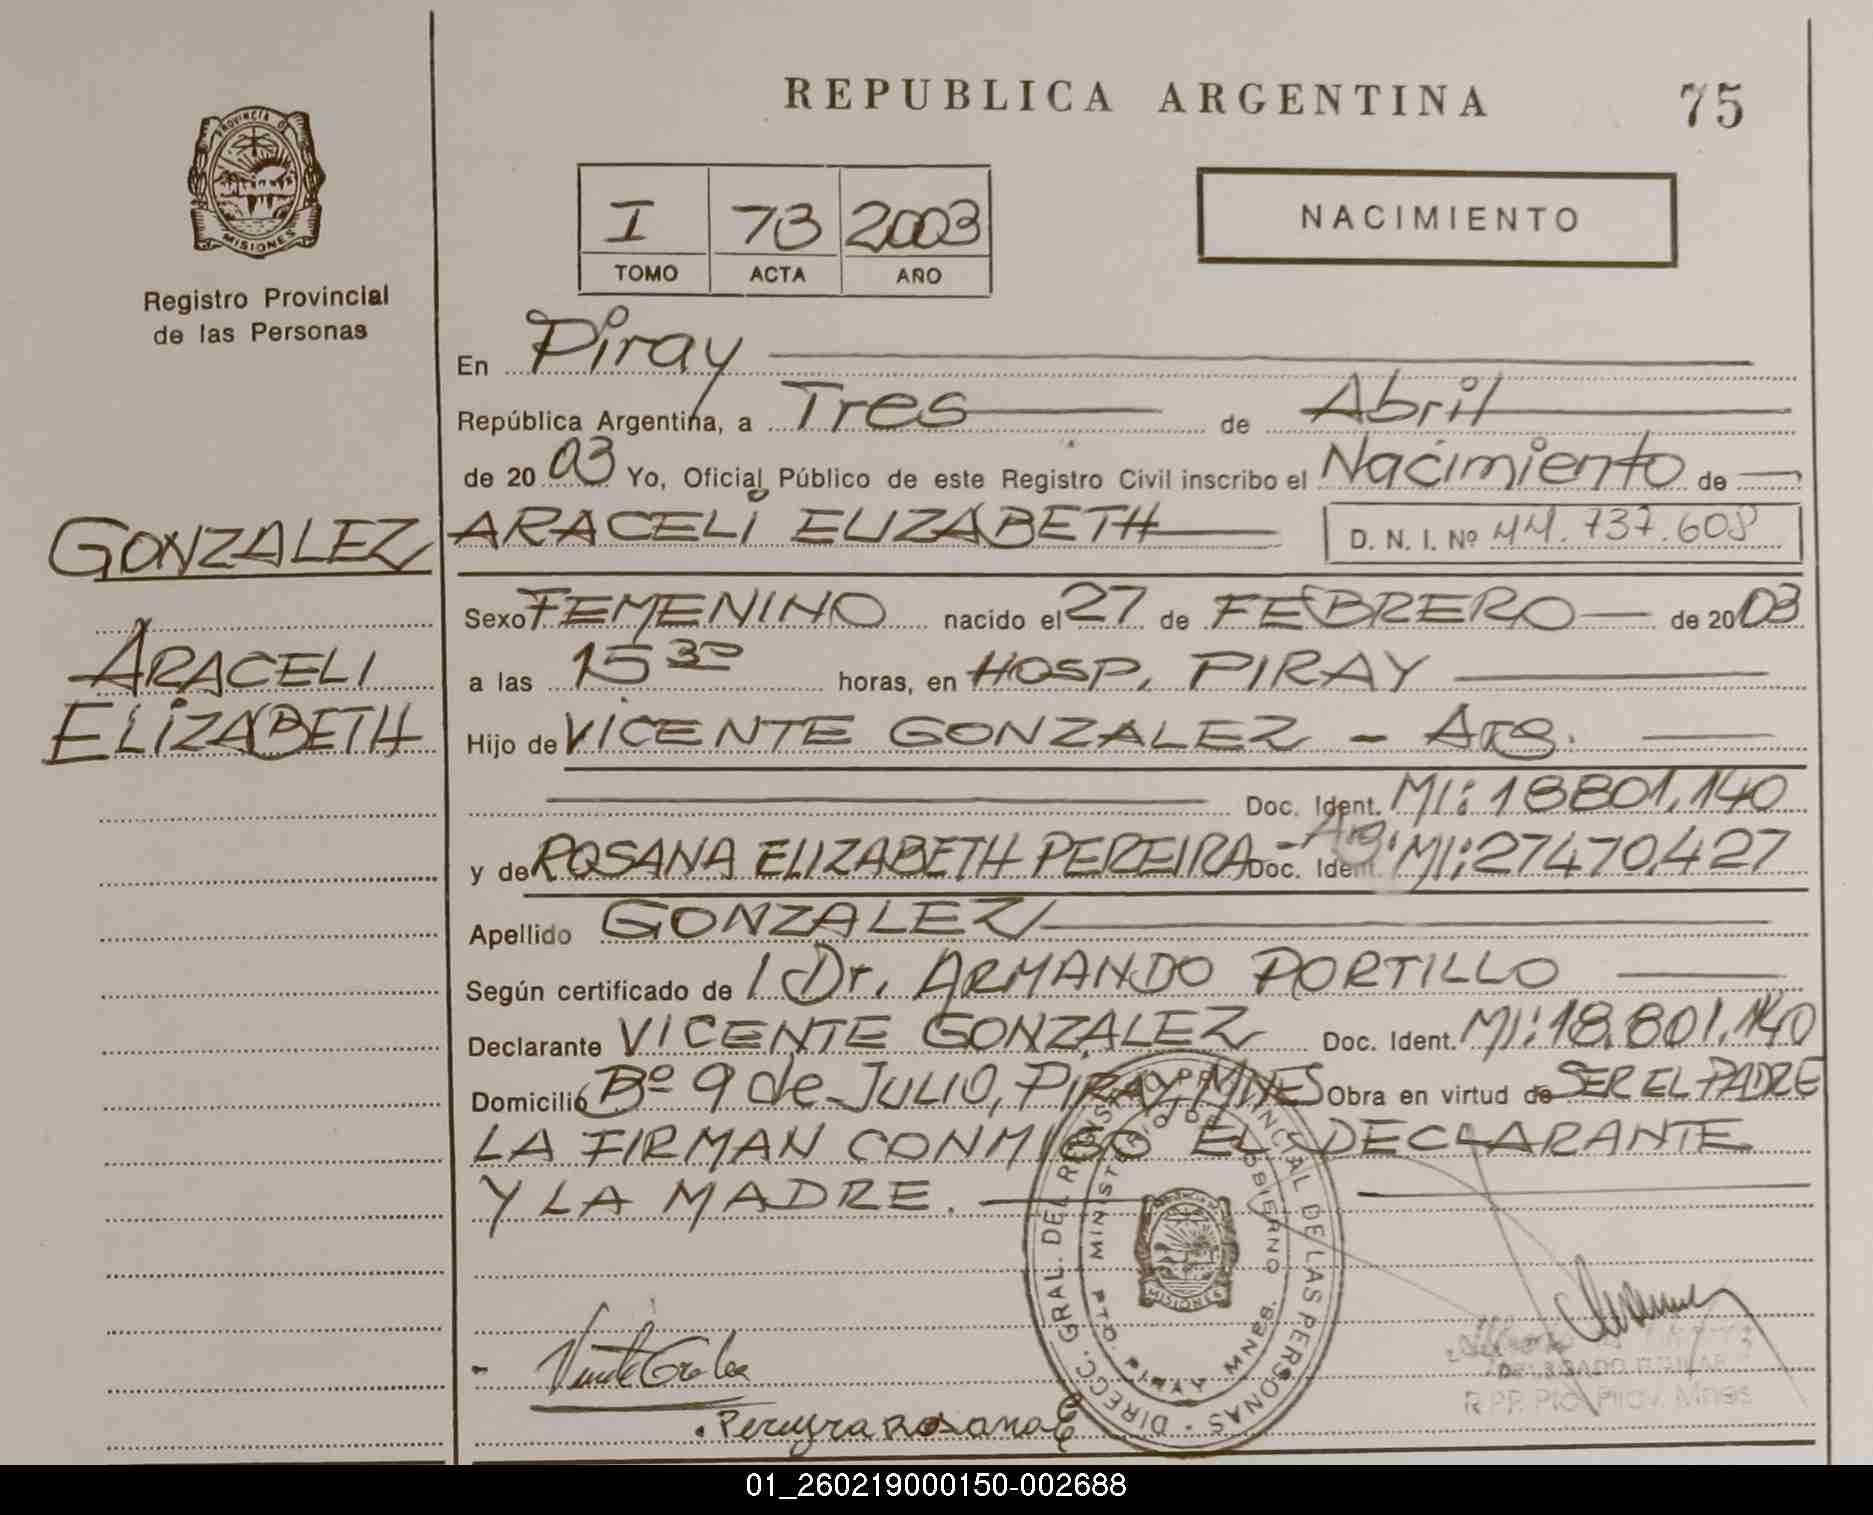 REPUBLICA ARGENTINA
75
PROVINCIA DE
MISIONES
Registro Provincial
de las Personas
I 73 2003
TOMO ACTA AÑO
NACIMIENTO
En Piray
República Argentina, a Tres de Abril
de 2003 Yo, Oficial Público de este Registro Civil inscribo el Nacimiento de
GONZALEZ ARACELI ELIZABETH D. N. I. Nº 44.737.608
Sexo FEMENINO nacido el 27 de FEBRERO de 2003
ARACELI
a las 15 30 horas, en HOSP. PIRAY
ELIZABETH
Hijo de VICENTE GONZALEZ - Arg.
Doc. Ident. MI: 18801.140
y de ROSANA ELIZABETH PEREIRA - Arg. Doc. Ident. MI: 27470.427
Apellido GONZALEZ
Según certificado de Dr. ARMANDO PORTILLO
Declarante VICENTE GONZALEZ Doc. Ident. MI: 18.801.140
Domicilio Bº 9 de JULIO, PIRAY, MNES Obra en virtud de SER EL PADRE
LA FIRMAN CONMIGO EL DECLARANTE
Y LA MADRE.
DIRECC. GRAL. DEL REGISTRO PROVINCIAL DE LAS PERSONAS
MINISTERIO DE GOBIERNO
PTO. PIRAY MNES.
MISIONES
Pereyra Rosana E
R.P.P. Pto. Piray. Mnes
01_260219000150-002688